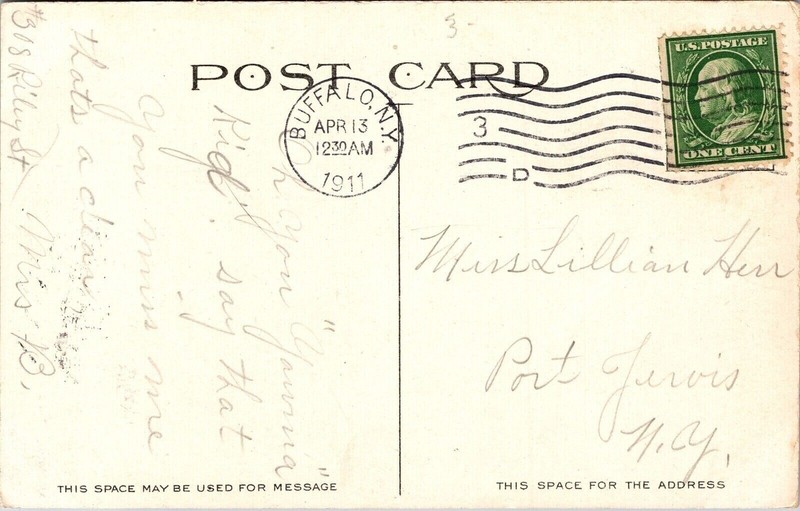 POST CARD
BUFFALO, N.Y.
APR 13
12 30 AM
1911
3
D
U.S. POSTAGE
ONE CENT
3
Oh you "
Kid". say that
you miss me
that's a dear
Mrs B.
#308 Riley St
Miss Lillian Herr
Port Jervis
N.Y.
THIS SPACE MAY BE USED FOR MESSAGE
THIS SPACE FOR THE ADDRESS